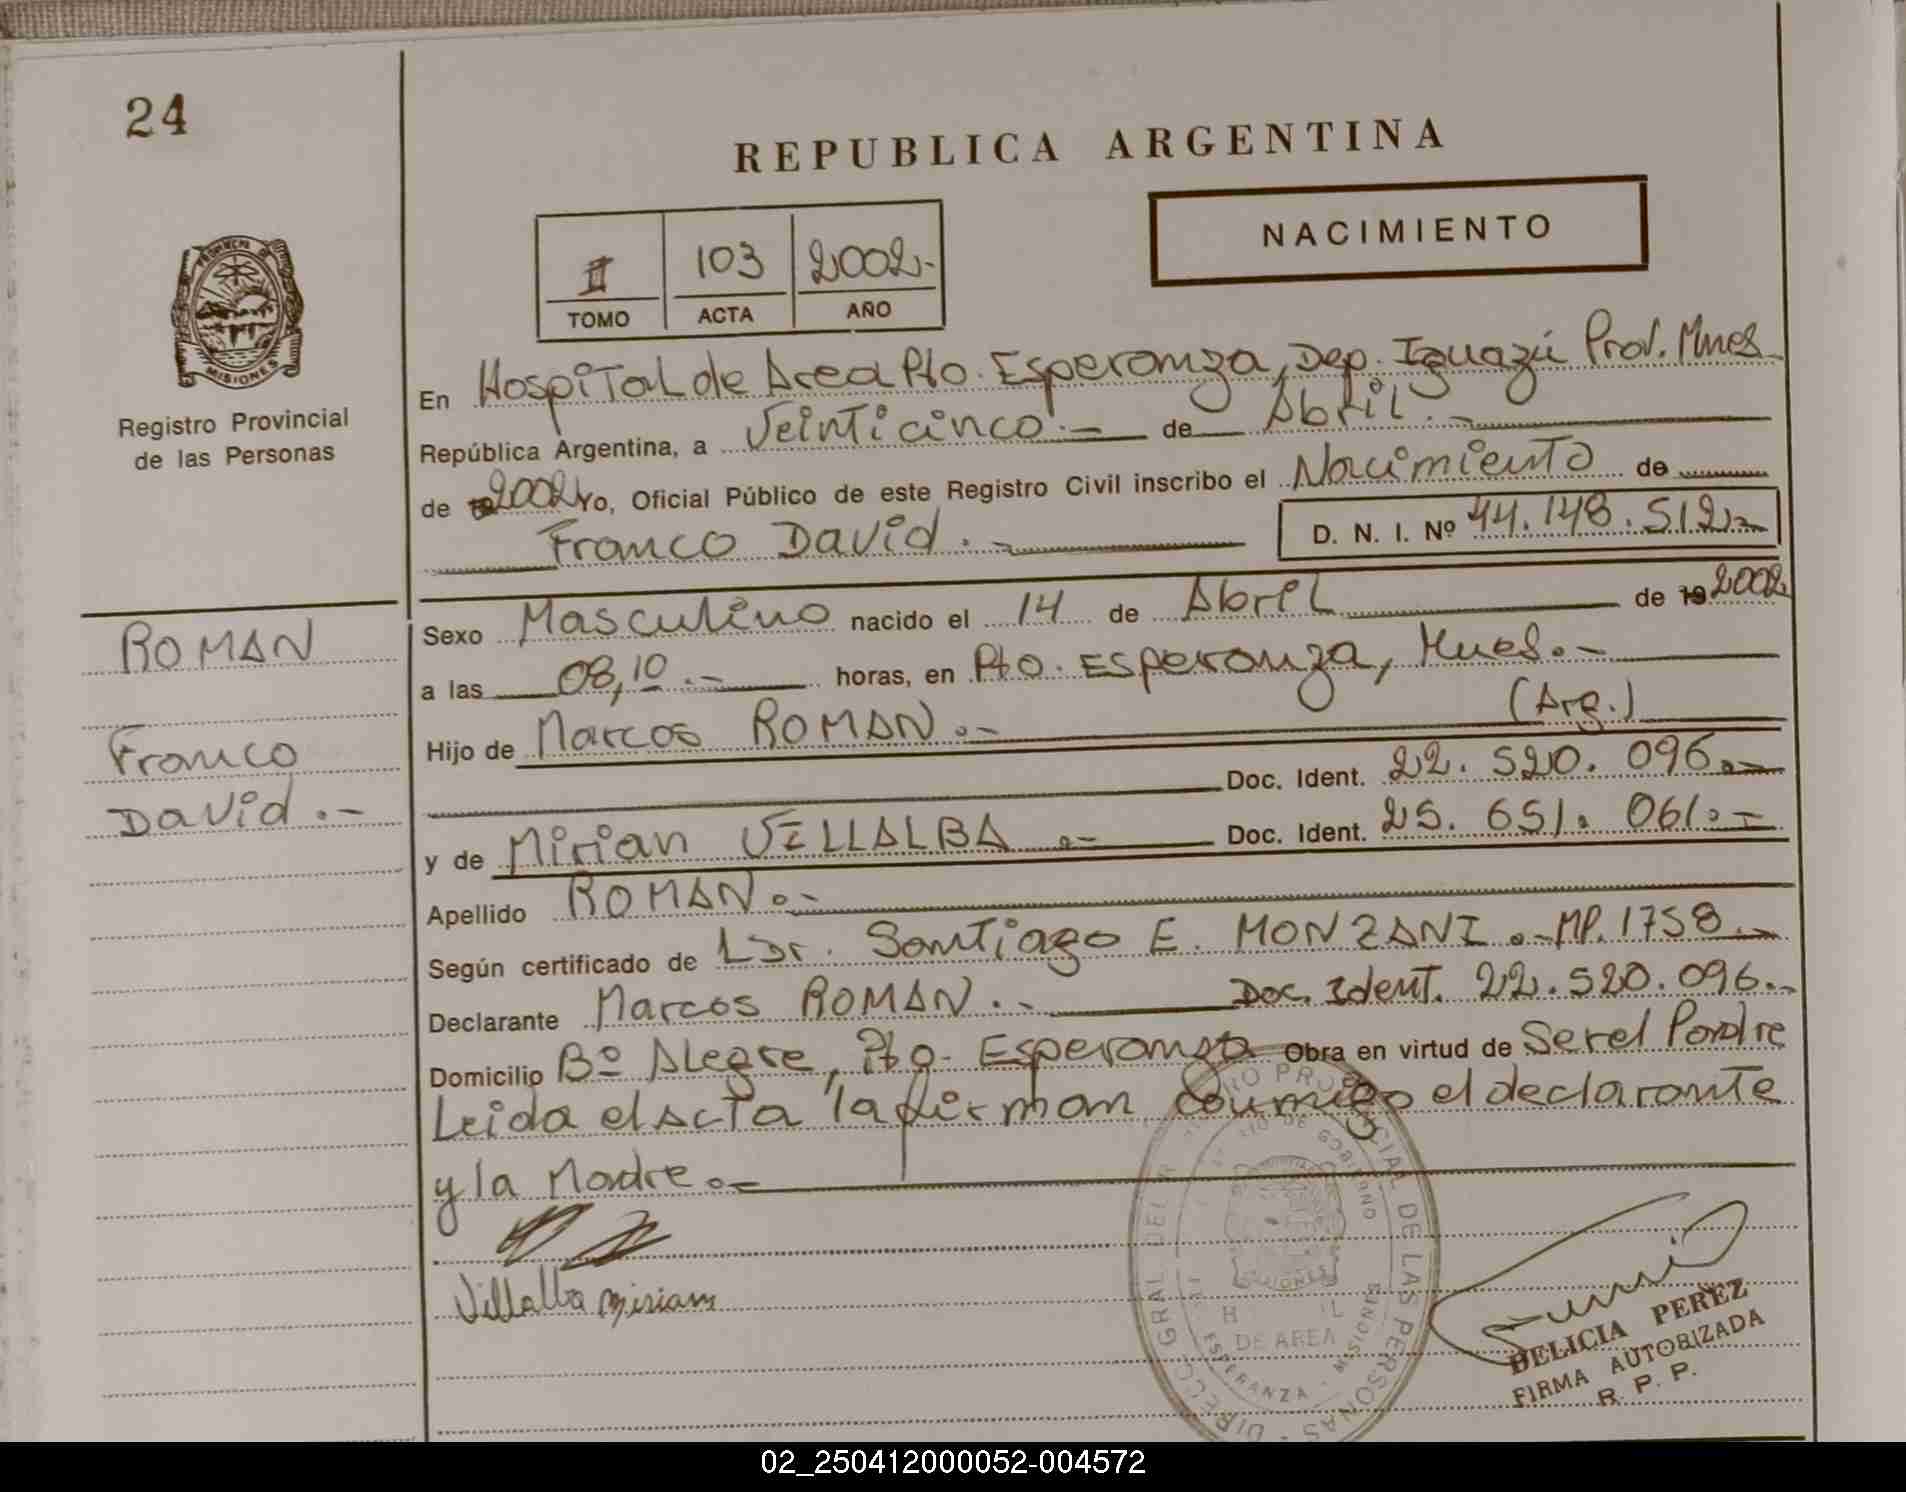 24
REPUBLICA ARGENTINA
NACIMIENTO
II 103 2002.-
TOMO ACTA AÑO
PROVINCIA DE
MISIONES
Registro Provincial
de las Personas
En Hospital de Area Pto. Esperanza, Dep. Iguazú Prov. Mnes
República Argentina, a Veinticinco.- de Abril.-
de 192002 Yo, Oficial Público de este Registro Civil inscribo el Nacimiento de
Franco David.- D. N. I. Nº 44.148.512-
ROMAN
Franco
David.-
Sexo Masculino nacido el 14 de Abril de 19 2002
a las 08,10.- horas, en Pto. Esperanza, Mnes.-
Hijo de Marcos ROMAN.- (Arg.)
Doc. Ident. 22.520.096.-
y de Mirian VILLALBA.- Doc. Ident. 25.651.061.-
Apellido ROMAN.-
Según certificado de Dr. Santiago E. MONZANI.-MP.1758.-
Declarante Marcos ROMAN.- Doc. Ident. 22.520.096.-
Domicilio Bº Alegre, Pto. Esperanza Obra en virtud de Ser el Padre
Leida el Acta la firman conmigo el declarante
y la Madre.-
Villalba Miriam
DIRECC. GRAL DEL REGISTRO PROVINCIAL DE LAS PERSONAS
DE GOBIERNO
MISIONES
DE AREA
ESPERANZA - MISIONES
DELICIA PEREZ
FIRMA AUTORIZADA
R. P. P.
02_250412000052-004572